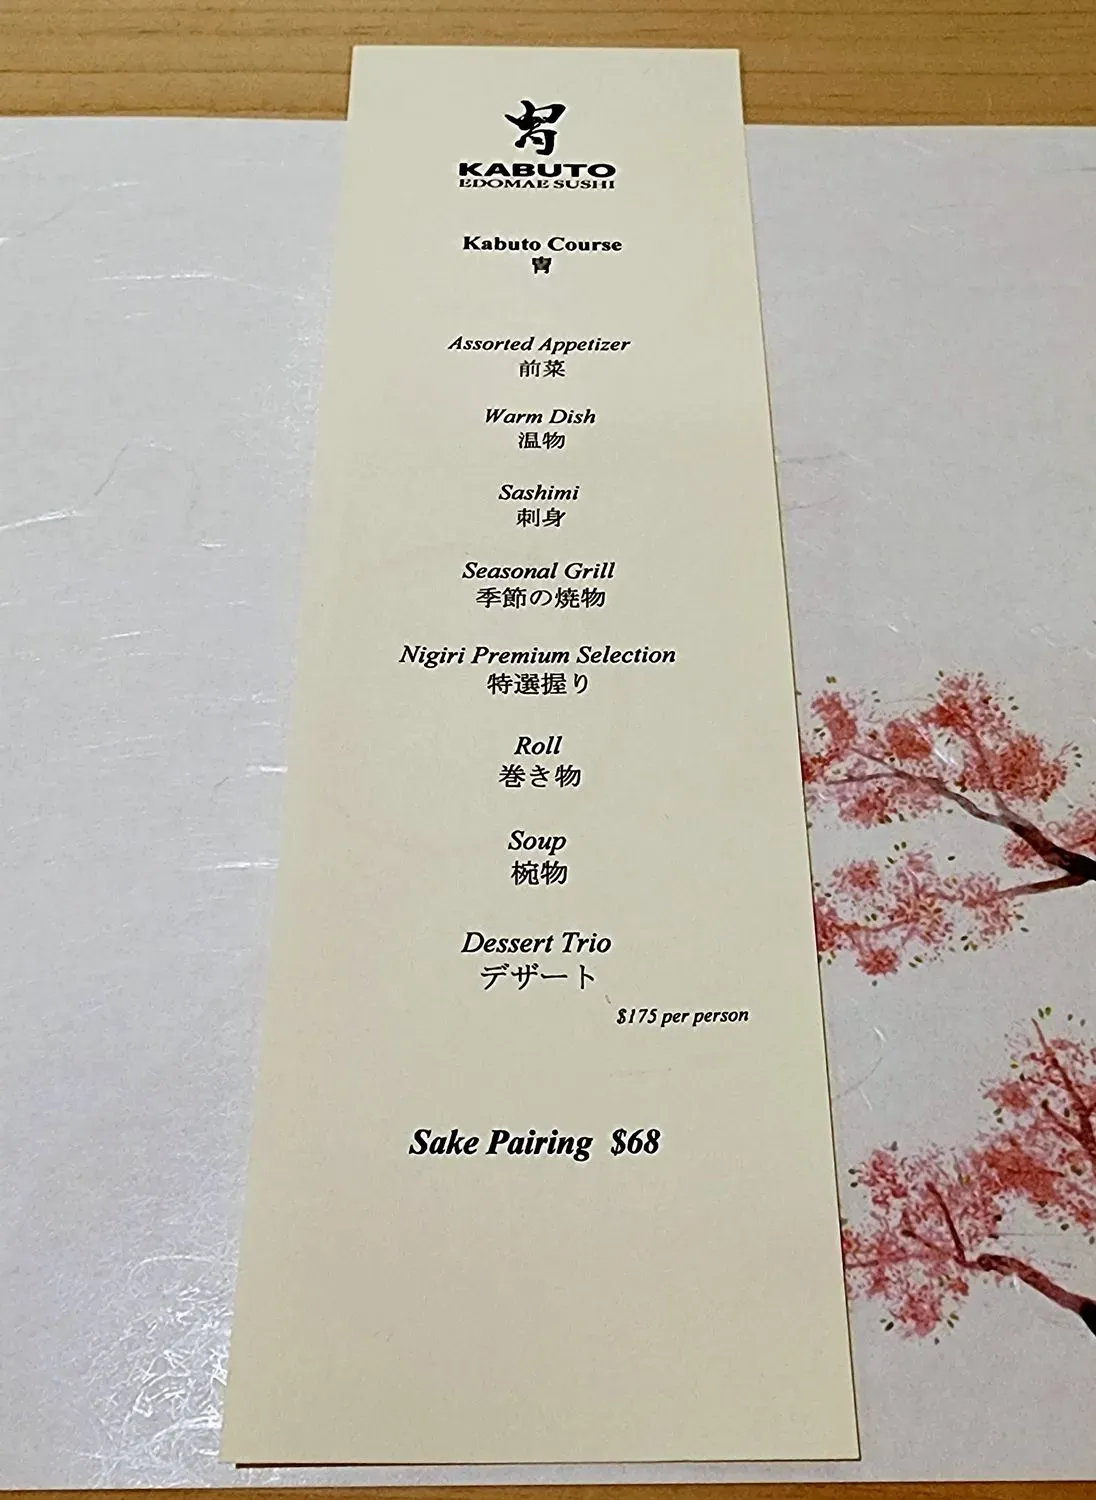 冑
KABUTO
EDOMAE SUSHI
Kabuto Course
冑
Assorted Appetizer
前菜
Warm Dish
温物
Sashimi
刺身
Seasonal Grill
季節の焼物
Nigiri Premium Selection
特選握り
Roll
巻き物
Soup
椀物
Dessert Trio
デザート
$175 per person
Sake Pairing $68